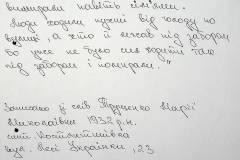 вимирали навіть сім'ями.
Люди ходили пухлі від голоду по
вулиці, а хто й лежав під забором
бо уже не було сил ходити так
під забором і помирали."
Записано зі слів Марії
Миколаївни 1932 р.н.
смт. Костянтинівка
вул. Лесі Українки, 23